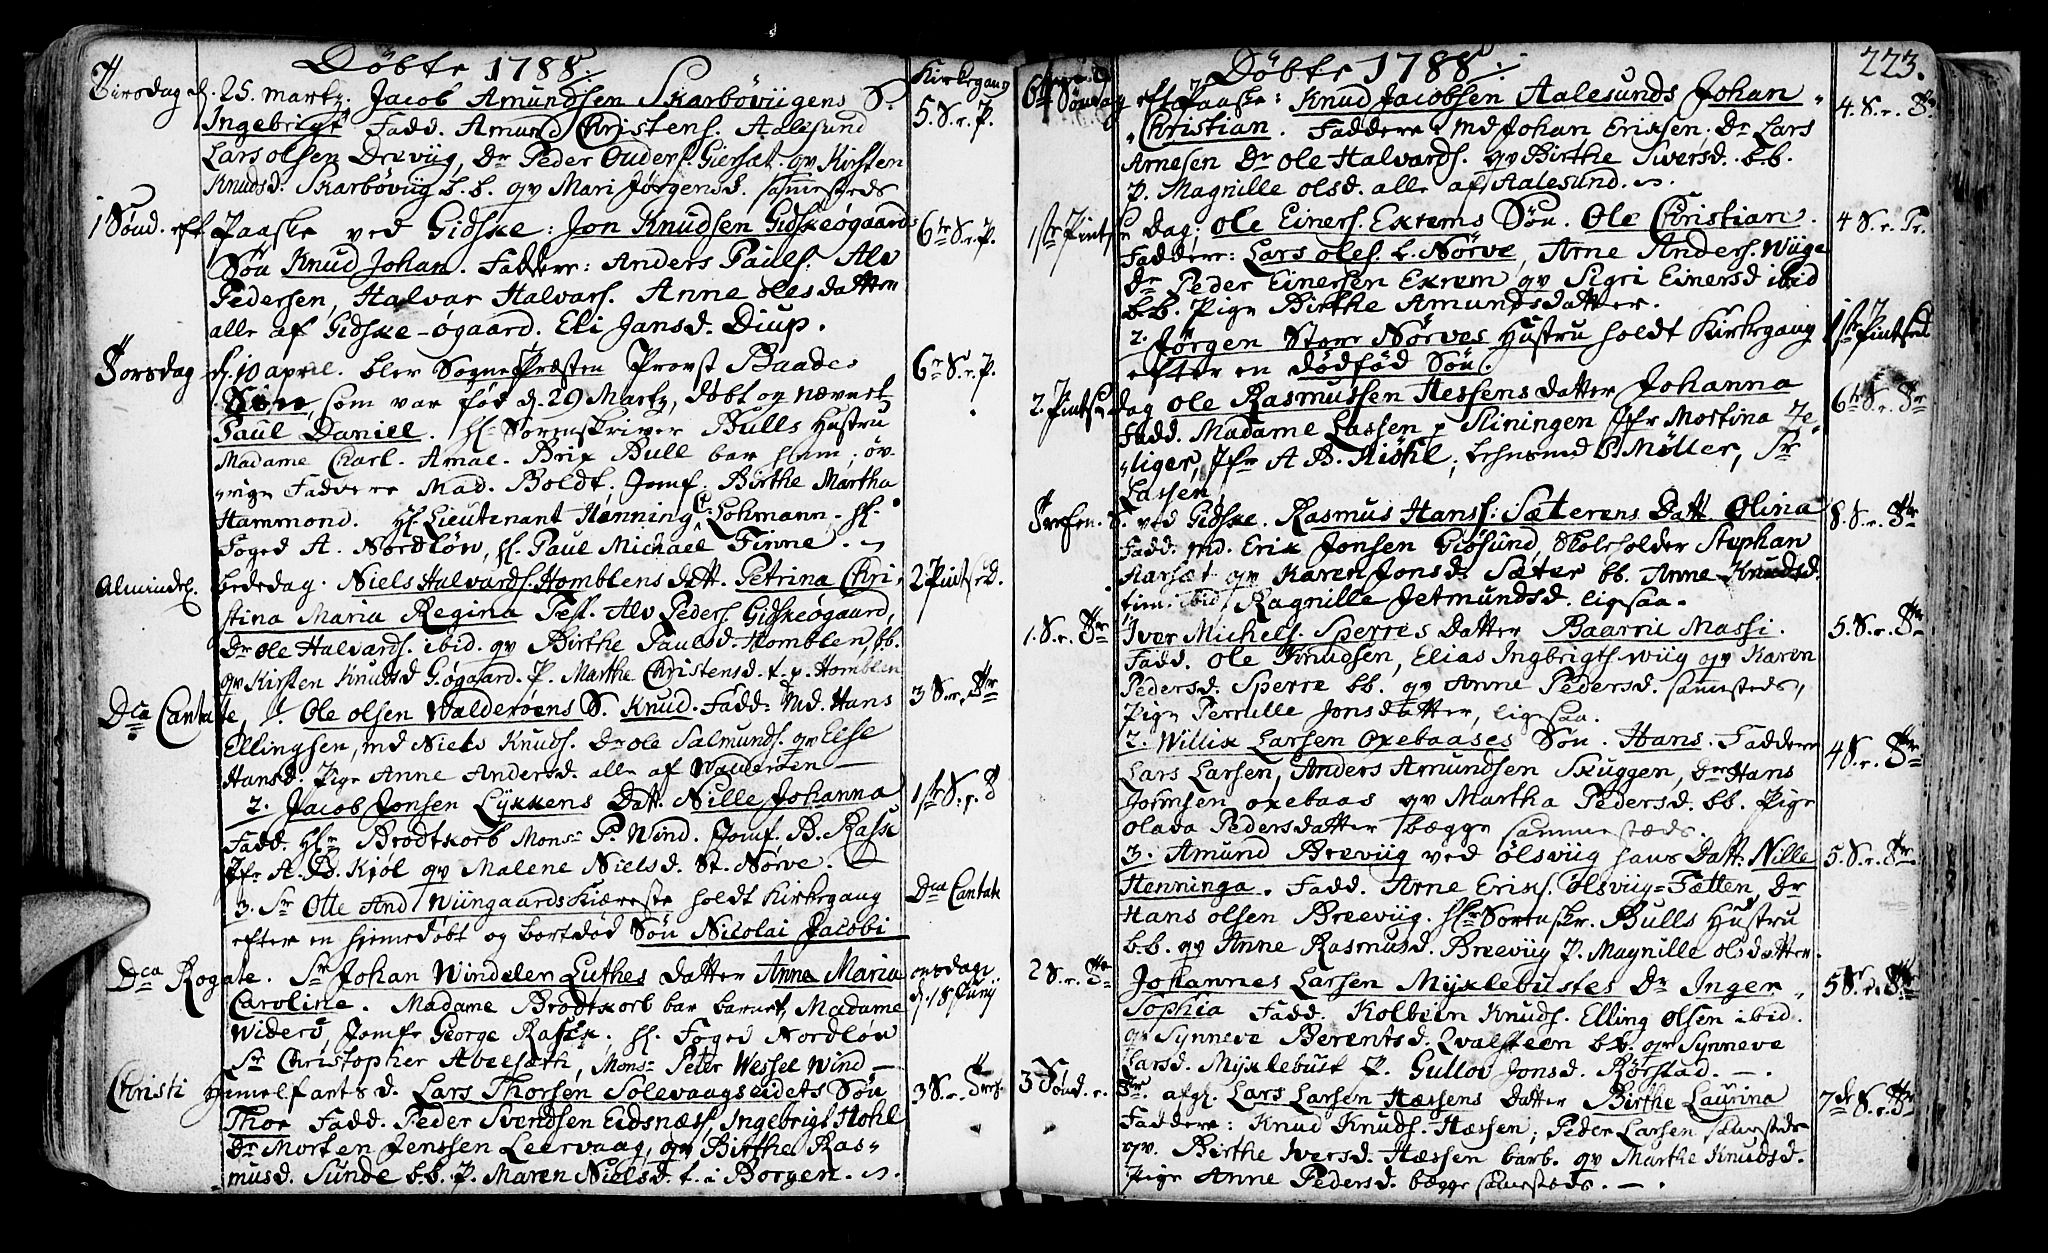 Döbte 1788
Kirkegang
Tirsdag d. 25. Martz. Jacob Amundsen Skarböviigens S.
5. S. e. P.
Ingebrigt Fadd. Amund Christens. Aalesund
Lars olsen Brevüg, Dr Peder Ouders. Giersæt. qv Kirsten
Knudsd. Skarböviig b.b. qv Mari Jørgensd. sammesteds
1 Sönd. eft Paaske ved Gidske: Jon Knudsen Gidskeøgaards
6te S. e. P.
Sön Knud Johan. Faddere: Anders Pauls. Alv
Pedersen, Halvar Halvars. Anne olesdatter
alle af Gidske-øgaard. Eli Jansd. Diup.
Torsdag d. 10 april. blev SognePræsten Provst Baades
6te S. e. P.
Sön, som var fød d. 29 Martz, døbt og nævnet
Paul Daniel. Hr. Sorenskriver Bulls Hustru
Madame Charl. Amal. Brix Bull bar ham; øv-
rige Faddere Mad. Boldt, Jomf. Birthe Martha
Hammond. Hr. Lieutenant Henning Lohmann. Hr.
Foged A. Nordløw, Hr. Paul Michael Finne.
Almindel. bededag. Niels Halvards. Homblens datt. Petrina Chri-
2 Pintsed.
stina Maria Regina Test. Alv Peders. Gidskeøgaard,
Dr ole Halvards. ibid. qv Birthe Paulsd. Homblen, bb.
qv Kirsten Knudsd Gøgaard. P. Marthe Christensd. t. p. Homblen
Dca Cantate, 1. Ole olsen Walderøens S. Knud. Fadd: Md. Hans
3 S. e. Tr
Ellingsen, md Niels Knuds. Dr ole Salmunds. qv Else
Hansd. Pige Anne Andersd. alle af Walderøen
2. Jacob Jonsen Lykkens Datt. Nille Johanna
1ste S. e. T
Fadd. Hr Brodtkorb Monsr P. Wind. Jomf. B. Rasse
Jfr A. B. Kiöl qv Malene Nielsd. St. Nørve.
3. Sr Otte And Wiingaards Kiæreste holdt Kirkegang
Dca Cantate
efter en hjemedøbt og bortdød Sön Nicolai Jacobi
Dca Rogate. Sr Johan Windelen Luthes datter Anna Maria
onsdag
Caroline. Madame Brodtkorb bar barnet, Madame
d. 18 Junij
Widerö, Jomfr George Rasse. Hr. Foged Nordløw
Sr Christopher Abelsæth, Monsr Peter Wessel Wind
Christi Himelfartsd. Lars Thorsen Solevaagseidets Sön
3 S. e. Tref.
Thor Fadd. Peder Svendsen Eidsnæss, Ingebrigt Hohl
Dr Morten Jenssen Leervaag, qv Birthe Ras-
musd. Sunde b.b. P. Maren Nielsd. t. i Borgen.
Döbte 1788
223.
6te Søndag eft Paaske: Knud Jacobsen Aalesunds Johan
4. S. e. Tr
Christian. Faddere: md Johan Eriksen. Dr Lars
Arnesen Dr ole Halvards. qv Birthe Iversd. b.b.
P. Magnille olsd. alle af Aalesund.
1ste Pintse dag: Ole Einers. Exrems Søn. Ole Christian.
4 S. e. Tr.
Faddere: Lars oles. L. Nörve, Arne Anders. Wiige
Dr Peder Einersen Exrem qv Sigri Einersd ibid
b.b. Pige Birthe Amundsdatter.
2. Jørgen Storr Nörves Hustru holdt Kirkegang
1ste Pintsed
efter en dødfød Sön.
2. Pintsedag Ole Rasmussen Hessens datter Johanna
6te S. e. Tr
Fadd. Madame Lassen p Sliningen Jfr Mortina Ze-
liger, Jfr A B. Kiöhl, Lehnsmd B Møller, Sr
Lassen
Trefen. S. ved Gidske. Rasmus Hans: Sæterens Datt Olina
8. S. e. Tr
Fadd. md. Erik Jonsen Giøsund, Skoleholder Stephan
Aarsæt qv Karen Jonsd. Sæter bb. Anne Knudsd.
tien. ibid Ragnille Jetmundsd. ligesaa.
1. S. e. Tr Iver Michels. Sperres Datter Baarni Massi.
5. S. e. Tr
Fadd. Ole Knudsen, Elias Ingbrigts Wiig qv Karen
Pedersd. Sperre bb. qv Anne Pedersd. samesteds,
Pige Pernille Jonsdatter, ligesaa.
2. Willix Larsen Oxebaases Søn. Hans. Faddere
4 S. e. Tr
Lars Larsen, Anders Amundsen Skuggen, Dr Hans
Jørnsen oxebaas qv Martha Pedersd. bb. Pige
olava Pedersdatter bægge sammesteds.
3. Amund Breviig ved Ølsviig hans Datt. Nille
5. S. e. Tr
Henninga. Fadd. Arne Eriks. Ølsviig-Tætten, Dr
Hans olsen Breeviig. Hr Sorenskr. Bulls Hustru
b.b. qv Anne Rasmusd. Breeviig P. Magnille olsdatter
2 S. e. Tr Johannes Larsen Myklebustes Dr Inger
5 S. e. Tr
Sophia Fadd. Kolbein Knuds. Elling Olsen ibid.
qv Synneve Berentsd. Qvalsteen b.b. qv Synneve
Larsd. Myklebust P. Gullov Jonsd. Rörstad.
3 Sönd. e. Tr. afgl. Lars Larsen Hæssens datter Birthe Laurina
7de S. e. Tr
Faddere: Knud Knuds. Hæssen; Peder Larsen samesteds
qv. Birthe Iversd. Hæssen barb. qv Marthe Knudsd.
Pige Anne Pedersd. bægge samesteds.